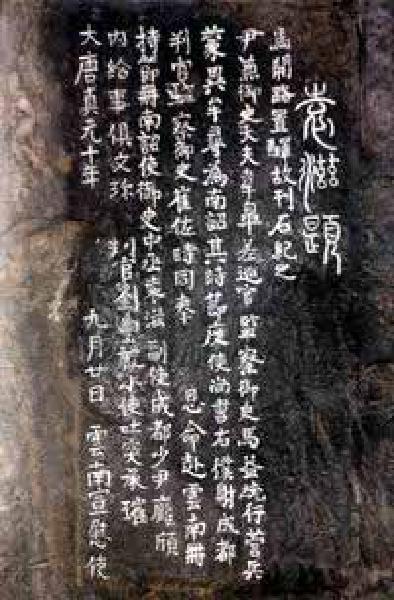 大唐貞元十年 九月廿日 雲南宣慰使
内給事俱文珍 判官劉幽巖 小使吐突承璀
持節册南詔使御史中丞袁滋 副使成都少尹龐頎
判官監察御史崔佐時同奉 恩命赴雲南册
蒙異牟尋為南詔其時節度使尚書右僕射成都
尹兼御史大夫韋皋差巡官監察御史馬益統行營兵
馬開路置驛故刊石紀之
袁滋題